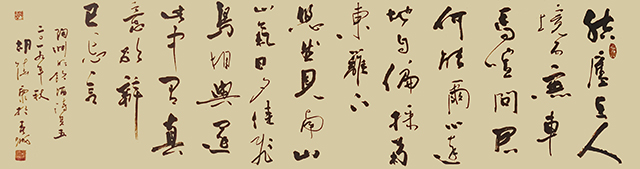 結廬在人
境而無車
馬喧問君
何能爾心遠
地自偏採菊
東籬下
悠然見南山
山氣日夕佳飛
鳥相與還
此中有真
意欲辨
已忘言
陶淵明飲酒詩其五
年秋
胡